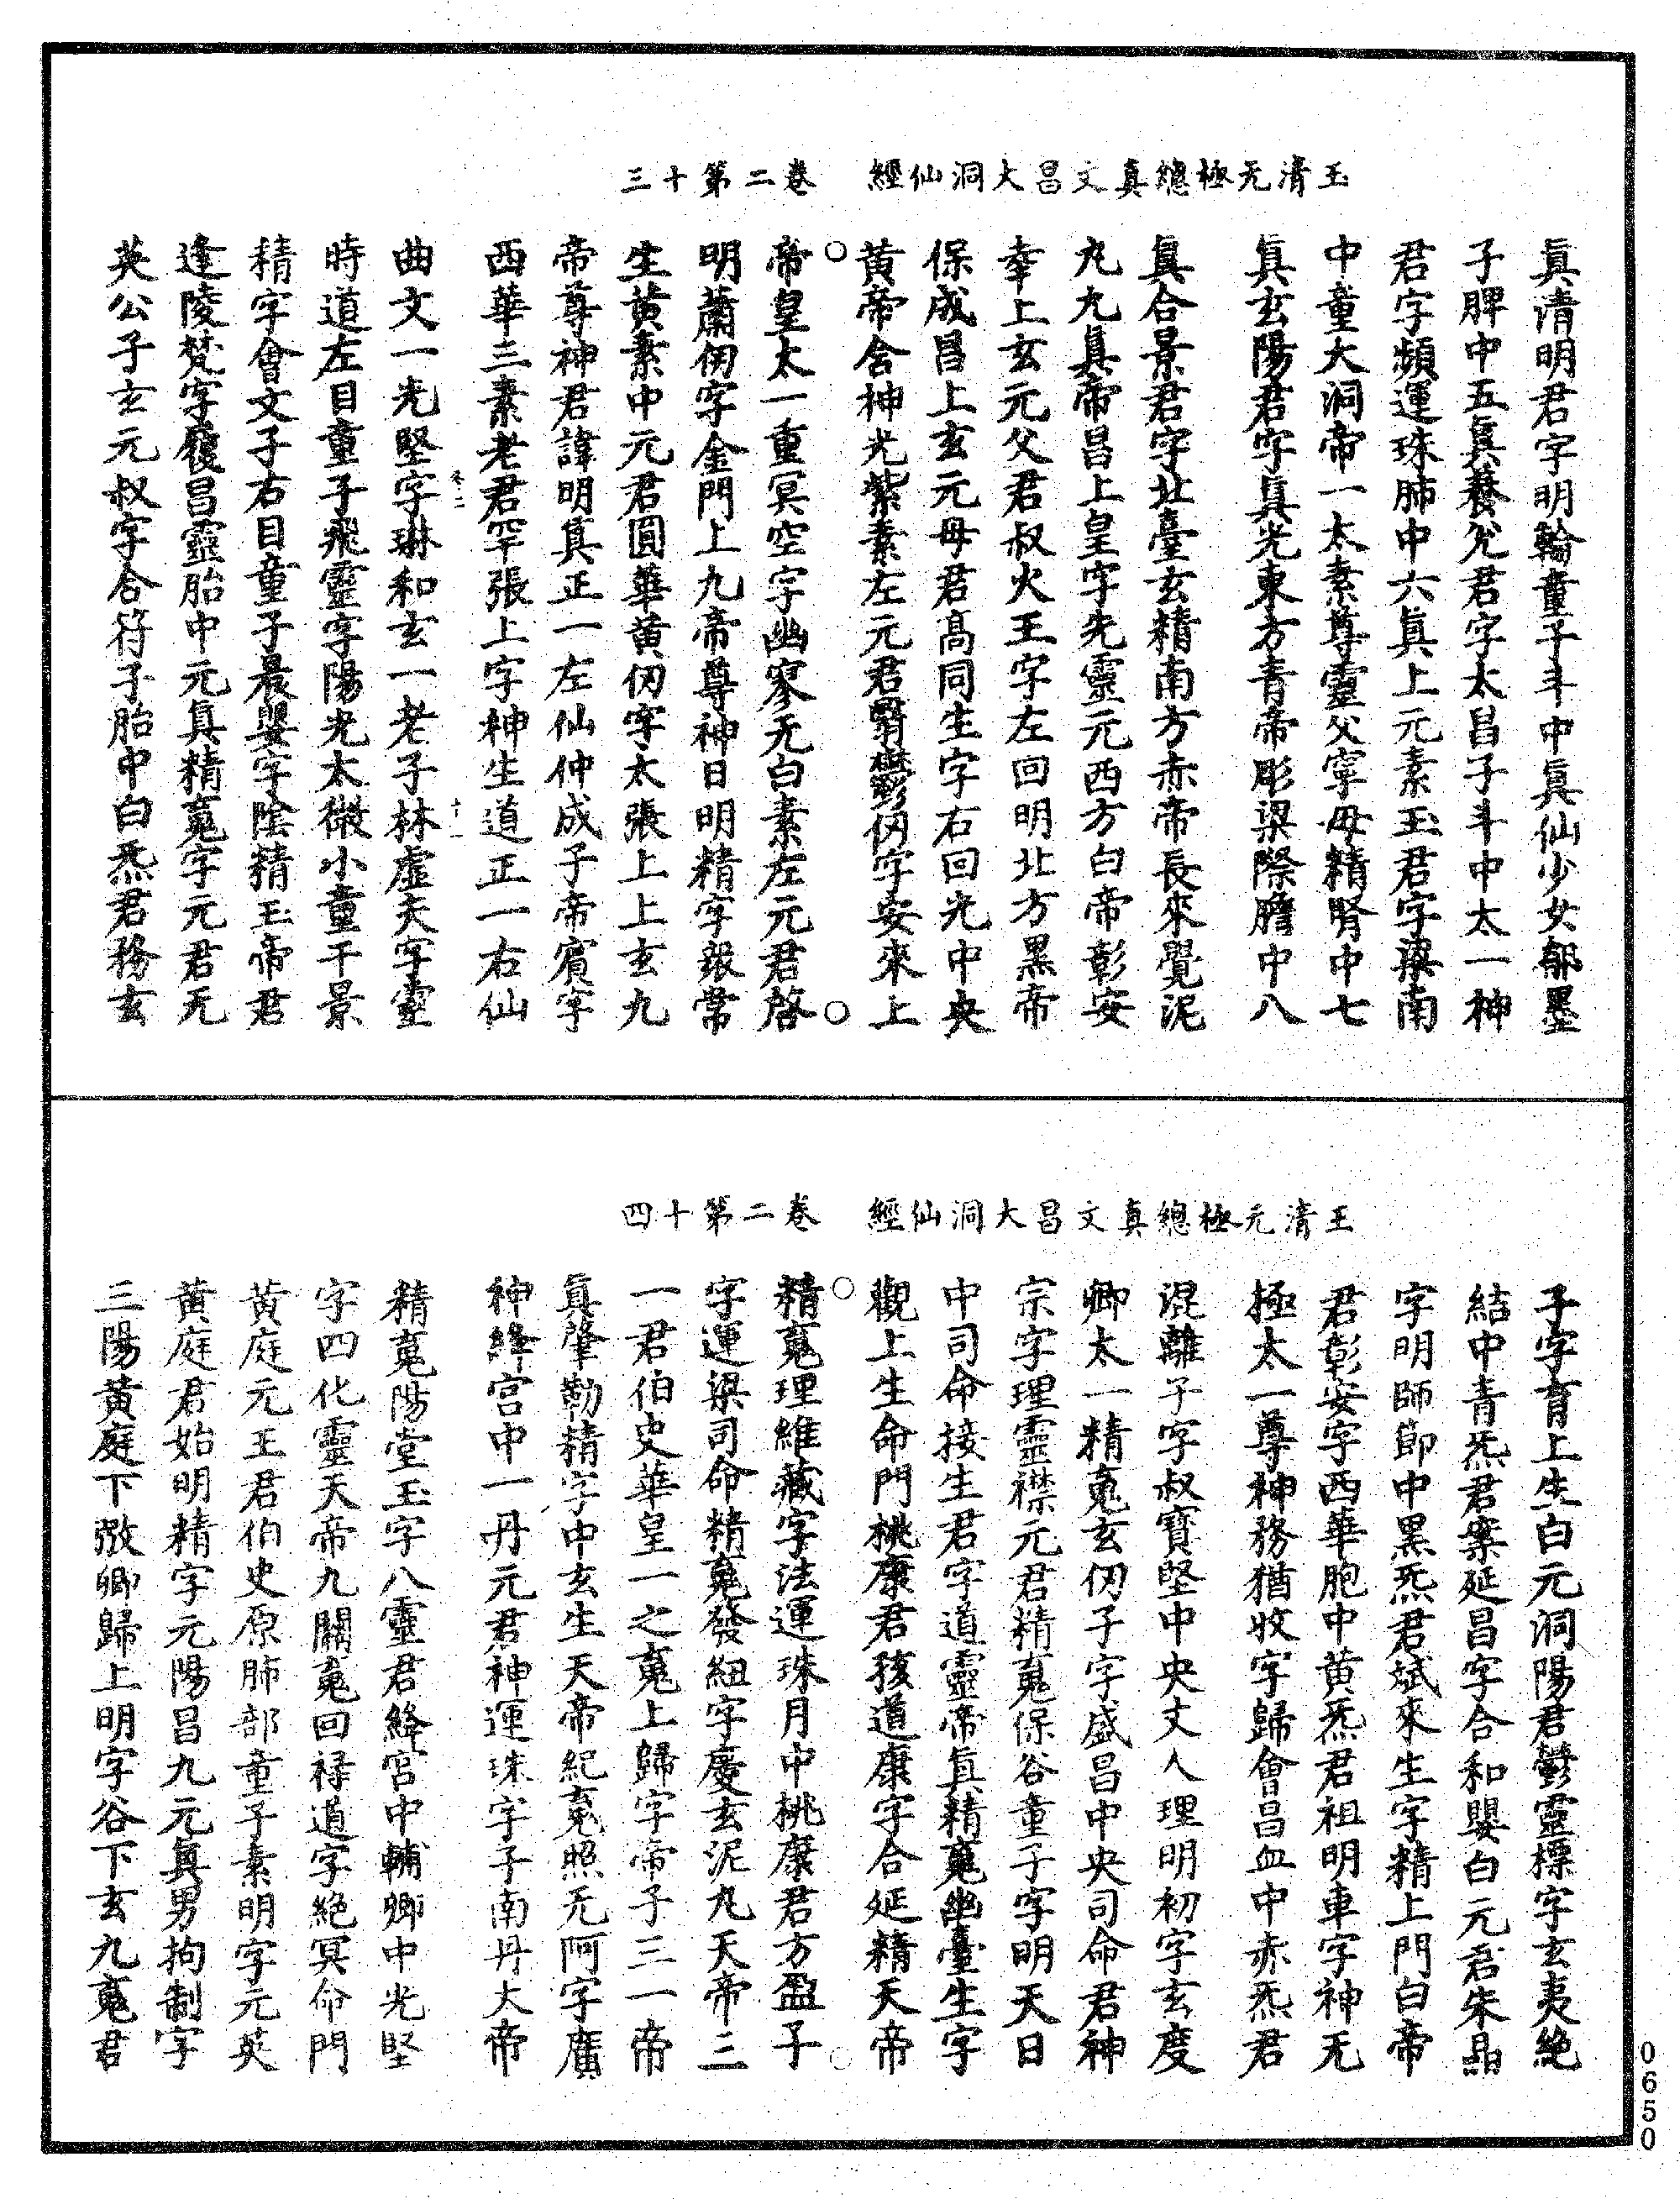 玉清无極總真文昌大洞仙經　卷二第十三
真清明君字明輪童子斗中真仙少女郁墨
子脾中五真養光君字太昌子斗中太一神
君字頻運珠肺中六真上元素玉君字梁南
中童大洞帝一太素尊靈父寧母精腎中七
真玄陽君字真光東方青帝彫梁際膽中八
真合景君字北臺玄精南方赤帝長來覺泥
丸九真帝昌上皇字先靈元西方白帝彰安
幸上玄元父君叔火王字左回明北方黑帝
保成昌上玄元母君高同生字右回光中央
黃帝含神光紫素左元君翳鬱仞字安來上
帝皇太一重冥空字幽寥无白素左元君啓
明蕭仞字金門上九帝尊神日明精字報常
生黃素中元君圓華黃仞字太張上上玄九
帝尊神君諱明真正一左仙仲成子帝賓字
西華三素老君罕張上字神生道正一右仙
曲文一光堅字琳和玄一老子林虛夫字靈
時道左目童子飛靈字陽光太微小童干景
精字會文子右目童子晨嬰字陰精玉帝君
逢陵梵字履昌靈胎中元真精䰟字元君无
英公子玄元叔字合符子胎中白炁君務玄
玉清元極總真文昌大洞仙經　卷二第十四
子字育上生白元洞陽君鬱靈標字玄夷絶
結中青炁君案延昌字合和嬰白元君朱晶
字明師節中黑炁君斌來生字精上門白帝
君彰安字西華胞中黃炁君祖明車字神无
極太一尊神務猶收字歸會昌血中赤炁君
混離子字叔寶堅中央丈人理明初字玄度
卿太一精䰟玄仞子字盛昌中央司命君神
宗字理靈襟元君精䰟保谷童子字明天日
中司命接生君字道靈帝真精䰟幽臺生字
觀上生命門桃康君孩道康字合延精天帝
精䰟理維藏字法運珠月中桃康君方盈子
字運梁司命精䰟發紐字慶玄泥丸天帝三
一君伯史華皇一之䰟上歸字帝子三一帝
真肇勒精字中玄生天帝紀䰟照无阿字廣
神絳宮中一丹元君神運珠字子南丹大帝
精䰟陽堂玉字八靈君絳宮中輔卿中光堅
字四化靈天帝九關䰟回祿道字絶冥命門
黃庭元王君伯史原肺部童子素明字元英
黃庭君始明精字元陽昌九元真男拘制字
三陽黃庭下㢸卿歸上明字谷下玄九䰟君
0650